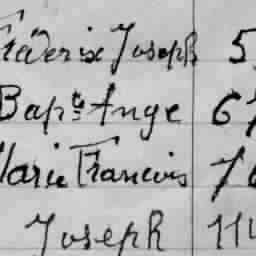 Fréderix Joseph 5
Bapte Ange 67
Marie Francois 76
Joseph 114